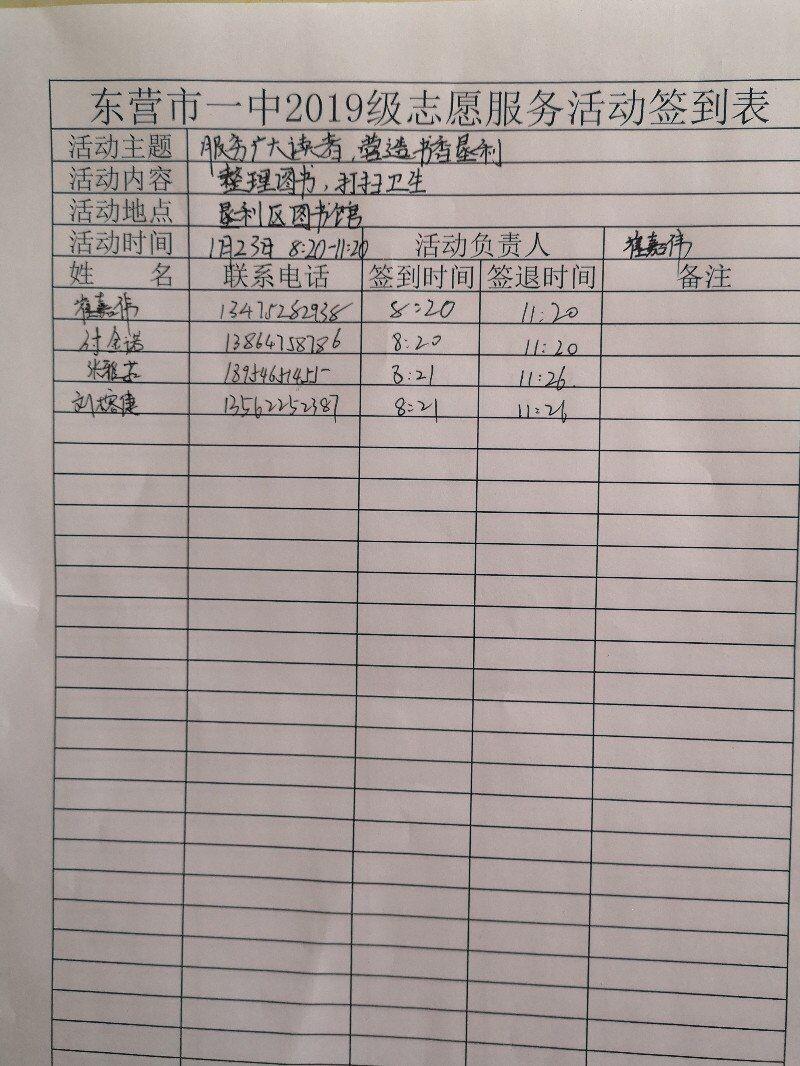 东营市一中2019级志愿服务活动签到表
活动主题 服务广大读者,营造书香垦利
活动内容 整理图书,打扫卫生
活动地点 垦利区图书馆
活动时间 1月23日 8:20-11:20 活动负责人 崔嘉伟
姓 名 联系电话 签到时间 签退时间 备注
崔嘉伟 13475282938 8:20 11:20
付金诺 13864758786 8:20 11:20
张雅 18954651455 8:21 11:26
刘榕康 13562252387 8:21 11:26